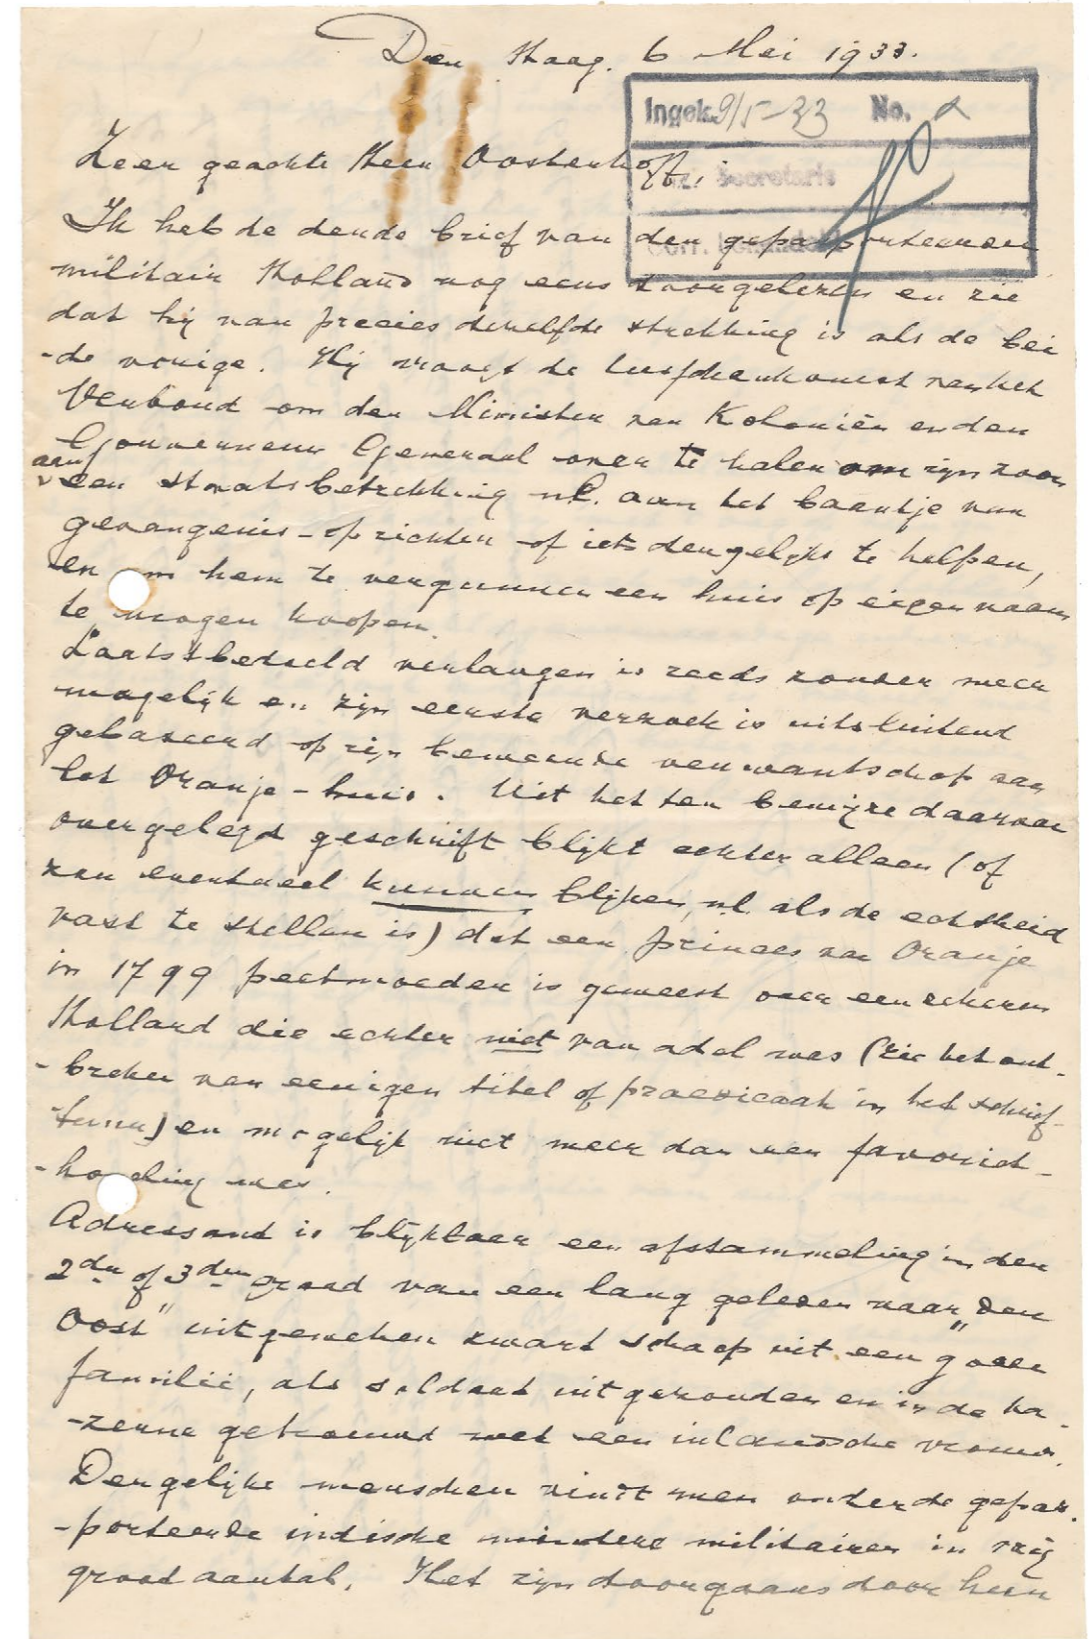 Den Haag. 6 Mei 1933.
Ingek. 9/5-33 No. a
Secretaris
Zeer geachte Heer Oosterhoff,
Ik heb de derde brief van den gepasporteerden
militair Holland nog eens doorgelezen en zie
dat hij van precies dezelfde strekking is als de bei
-de vorige. Hij vraagt de tusschenkomst van het
Verbond om den Minister van Koloniën en den
Gouverneur Generaal over te halen om zijn zoon
aan
een staatsbetrekking nl. aan het baantje van
gevangenis-opzichter of iets dergelijks te helpen,
en om hem te vergunnen een huis op eigen naam
te mogen koopen.
Laatstbedoeld verlangen is reeds zonder meer
mogelijk en zijn eerste verzoek is uitsluitend
gebaseerd op zijn beweerde verwantschap aan
het Oranje-huis. Uit het ten bewijze daarvan
overgelegd geschrift blijkt echter alleen (of
zou eventueel kunnen blijken, nl. als de echtheid
vast te stellen is) dat een prinses van Oranje
in 1799 peetmoeder is geweest over een zekeren
Holland die echter niet van adel was (zie het ont-
-breken van eenigen titel of praedicaat in het schrif-
-tuur) en mogelijk niet meer dan een favoriet-
-hoveling was.
Adressant is blijkbaar een afstammeling in den
2den of 3den graad van een lang geleden naar "den
Oost" uitgeweken zwart schaap uit een goede
familie, als soldaat uitgezonden en in de ka-
-zerne getrouwd met een inlandsche vrouw.
Dergelijke menschen vindt men onder de gepas-
-porteerde indische mindere militairen in vrij
groot aantal. Het zijn doorgaans door hun